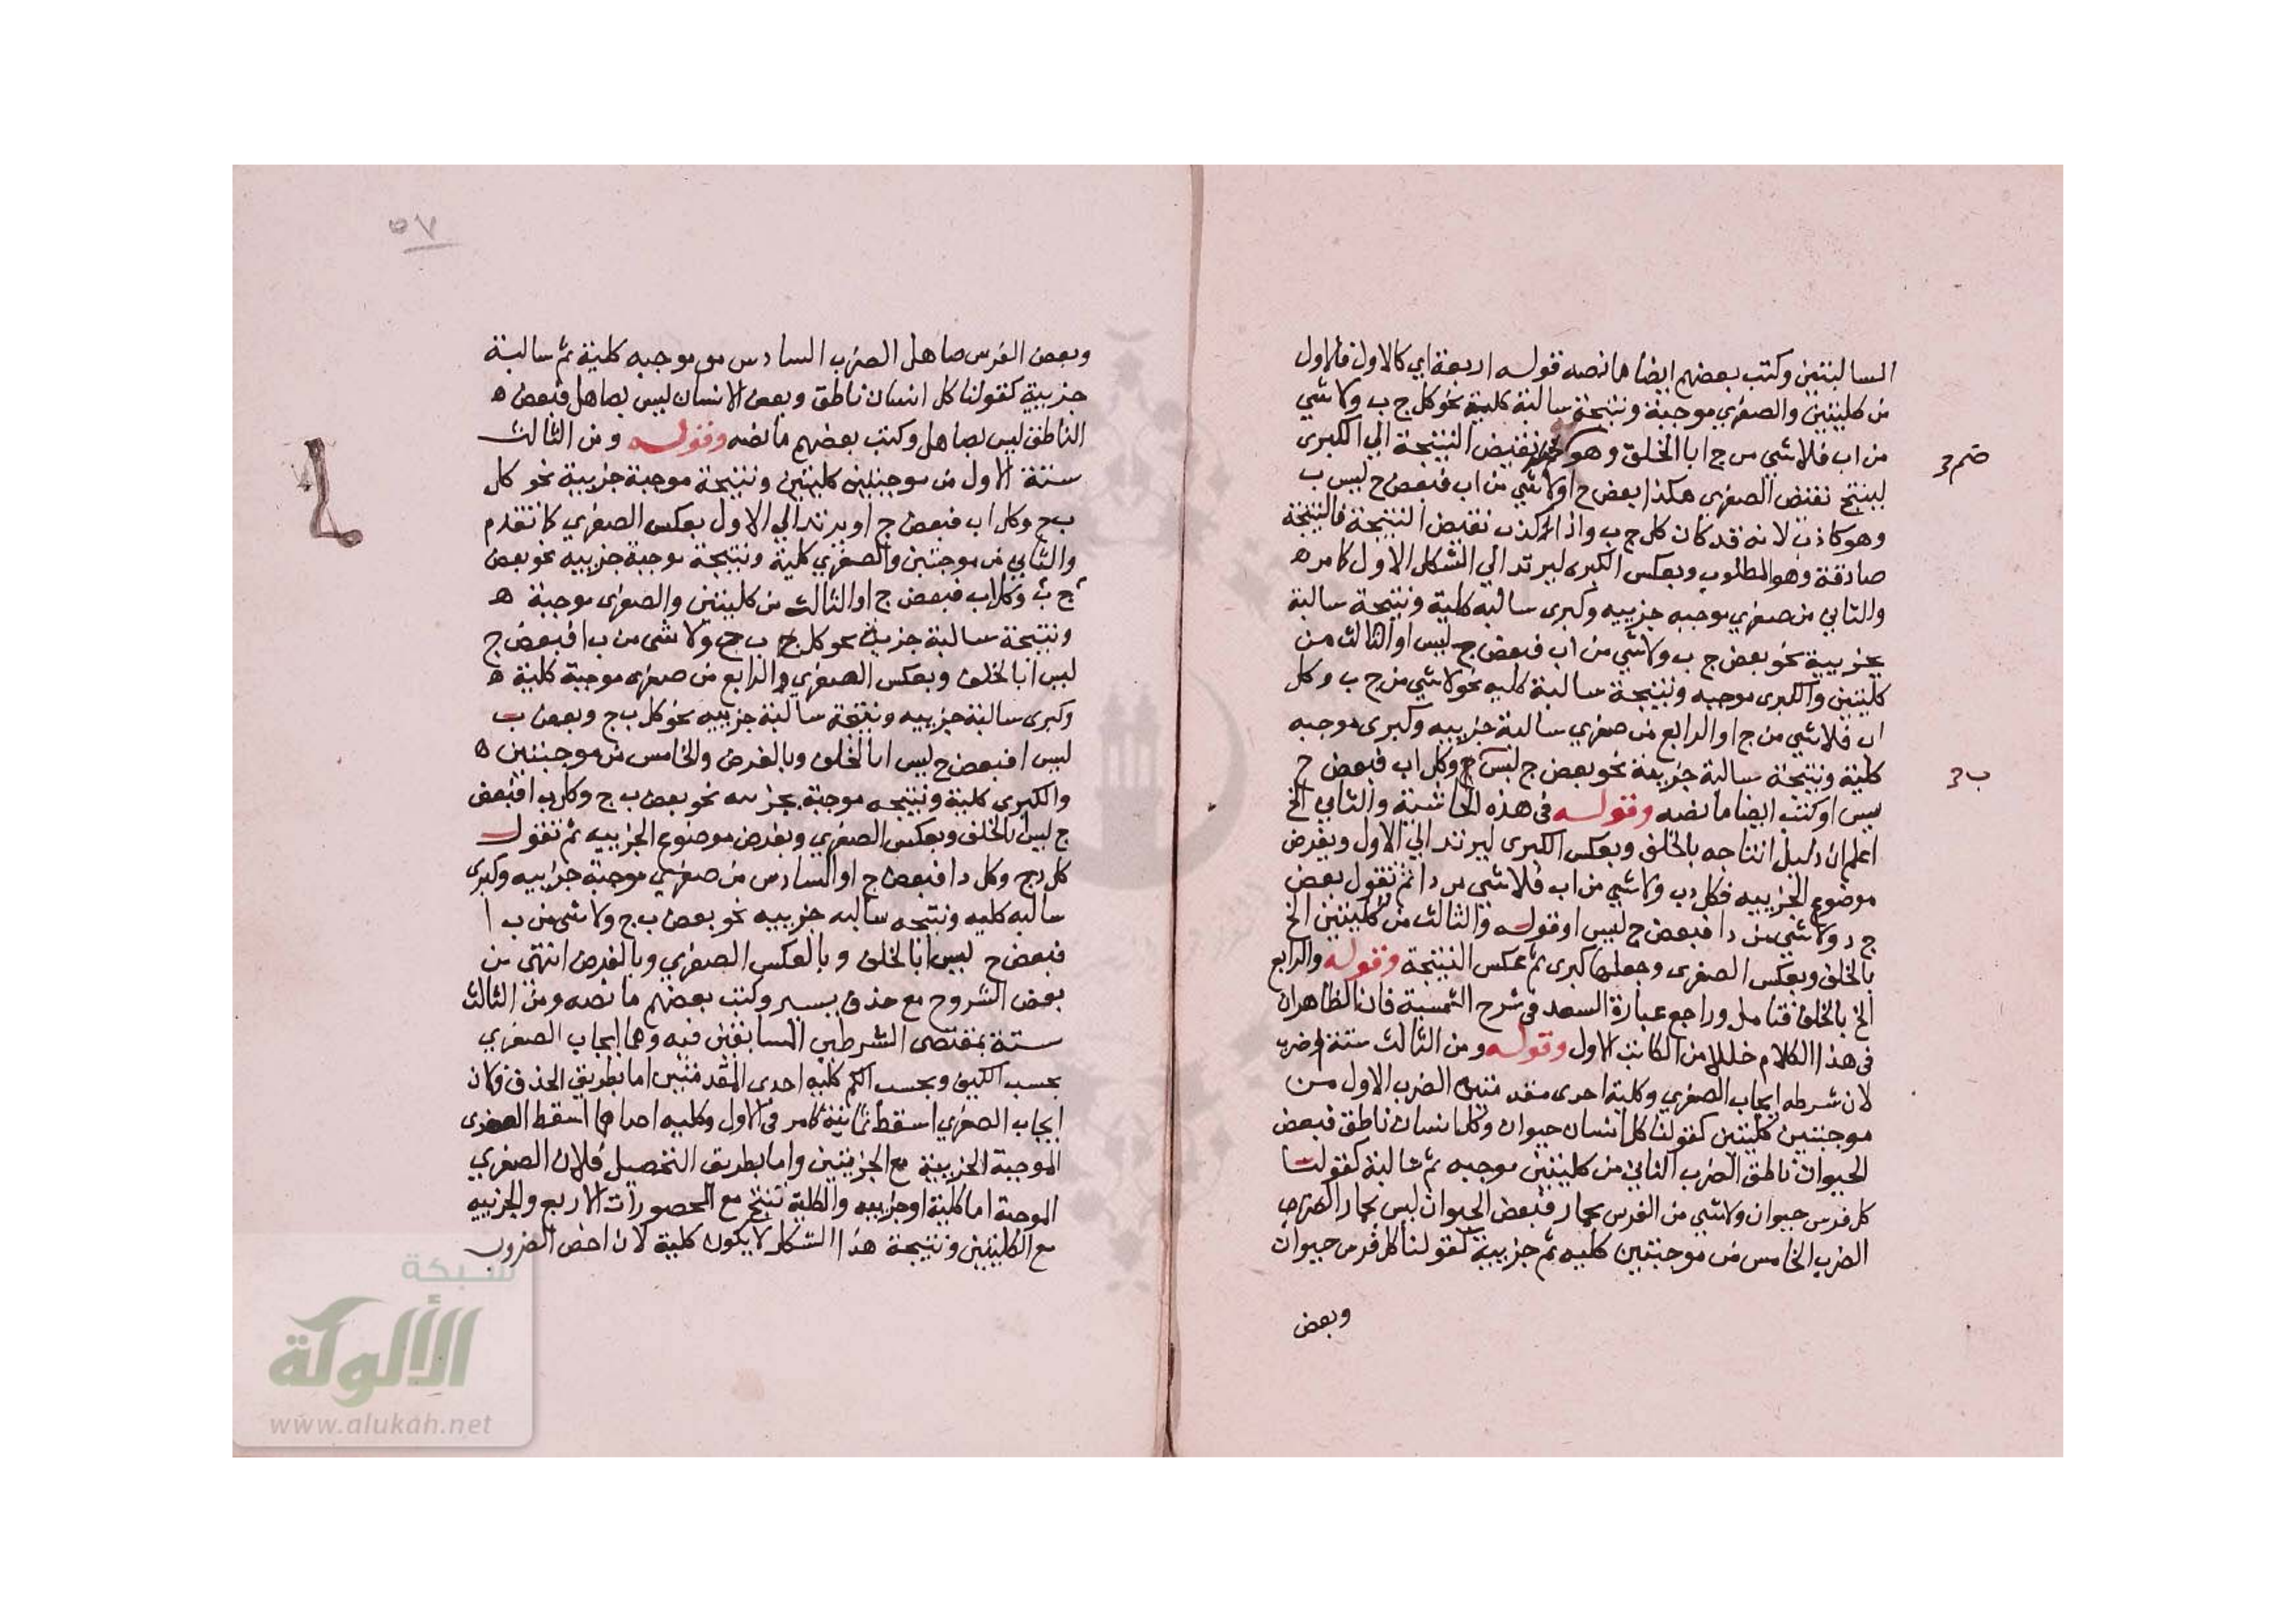 السالبتين وكتب بعضهم ايضا ما نصه قوله اربعة اي كالاول فالاول
من كليتين والصغري موجبة ونتيجة سالبة كلية نحو كل ج ب ولا شي
من اب فلا شي من ج ا بالخلف وهو ضم نقيض النتيجة الي الكبرى
لينتج نقيض الصغري هكذا بعض ج ا ولا شي من اب فبعض ج ليس ب
وهو كاذب لانه قد كان كل ج ب واذا كذب نقيض النتيجة فالنتيجة
صادقة وهو المطلوب وبعكس الكبرى ليرتد الي الشكل الاول كما مر ه
والثاني من صغري موجبه جزييه وكبرى سالبه كلية ونتيجة سالبة
جزيية نحو بعض ج ب ولا شي من اب فبعض ج ليس ا والثالث من
كليتين والكبرى موجبه ونتيجة سالبة كليه نحو لا شي من ج ب وكل
اب فلا شي من ج ا والرابع من صغري سالبة جزييه وكبرى موجبه
كلية ونتيجة سالبة جزيية نحو بعض ج ليس ب وكل اب فبعض ج
ليس ا وكتب ايضا ما نصه وقوله في هذه الحاشية والثاني الخ
اعلم ان دليل انتاجه بالخلف وبعكس الكبرى ليرتد الي الاول وبفرض
موضوع الجزييه فكل دب ولا شي من اب فلا شي من دا ثم تقول بعض
ج د ولا شي من دا فبعض ج ليس ا وقوله والثالث من كليتين الخ
بالخلف وبعكس الصغرى وجعلها كبرى ثم عكس النتيجة وقوله والرابع
الخ بالخلف فتامل وراجع عبارة السعد في شرح الشمسية فان الظاهر ان
في هذا الكلام خللا من الكاتب الاول وقوله ومن الثالث ستة اضرب
لان شرطه ايجاب الصغري وكلية احدى مقدمتيه الضرب الاول من
موجبتين كليتين كقولنا كل انسان حيوان وكل انسان ناطق فبعض
الحيوان ناطق الضرب الثاني من كليتين موجبه ثم سالبة كقولنا
كل فرس حيوان ولا شي من الفرس بحمار فبعض الحيوان ليس بحمار
الضرب الخامس من موجبتين كليه ثم جزيية كقولنا كل فرس حيوان
وبعض
ضم صح
ب صح
٥٧
وبعض الفرس صاهل الضرب السادس من موجبه كلية ثم سالبة
جزيية كقولنا كل انسان ناطق وبعض الانسان ليس بصاهل فبعض ه
الناطق ليس بصاهل وكتب بعضهم ما نصه وقوله ومن الثالث
ستة الاول من موجبتين كليتين ونتيجة موجبة جزيية نحو كل
ب ج وكل اب فبعض ج ا ويرتد الي الاول بعكس الصغري كما تقدم
والثاني من موجبتين والصغري كلية ونتيجة موجبة جزييه نحو بعض
ج ب وكل اب فبعض ج ا والثالث من كليتين والصغرى موجبة ه
ونتيجة سالبة جزيية نحو كل ب ج ولا شي من ب ا فبعض ج
ليس ا بالخلف وبعكس الصغري والرابع من صغرى موجبة كلية ه
وكبرى سالبة جزييه ونتيجة سالبة جزييه نحو كل ب ج وبعض ب
ليس ا فبعض ج ليس ا بالخلف وبالفرض والخامس من موجبتين ه
والكبرى كلية ونتيجه موجبة جزييه نحو بعض ب ج وكل ب ا فبعض
ج ليس ا بالخلف وبعكس الصغري وبفرض موضوع الجزييه ثم تقول
كل د ج وكل د ا فبعض ج ا والسادس من صغري موجبة جزييه وكبرى
سالبه كليه ونتيجه سالبه جزييه نحو بعض ب ج ولا شي من ب ا
فبعض ج ليس ا بالخلف وبالعكس الصغري وبالفرض انتهى من
بعض الشروح مع حذف يسير وكتب بعضهم ما نصه ومن الثالث
ستة بمقتضى الشرطين السابقين فيه وهما ايجاب الصغري
بحسب الكيف وبحسب الكم كليه احدى المقدمتين اما بطريق الحذف فلان
ايجاب الصغري اسقط ثمانية كما مر في الاول وكليه احداهما اسقط الصغرى
الموجبة الجزيية مع الجزيتين واما بطريق التحصيل فلان الصغري
الموجبة اما كلية او جزييه والكلية تنتج مع المحصورات الاربع والجزييه
مع الكليتين ونتيجة هذا الشكل لا يكون كلية لان اخص الضروب
شبكة
الألوكة
www.alukah.net